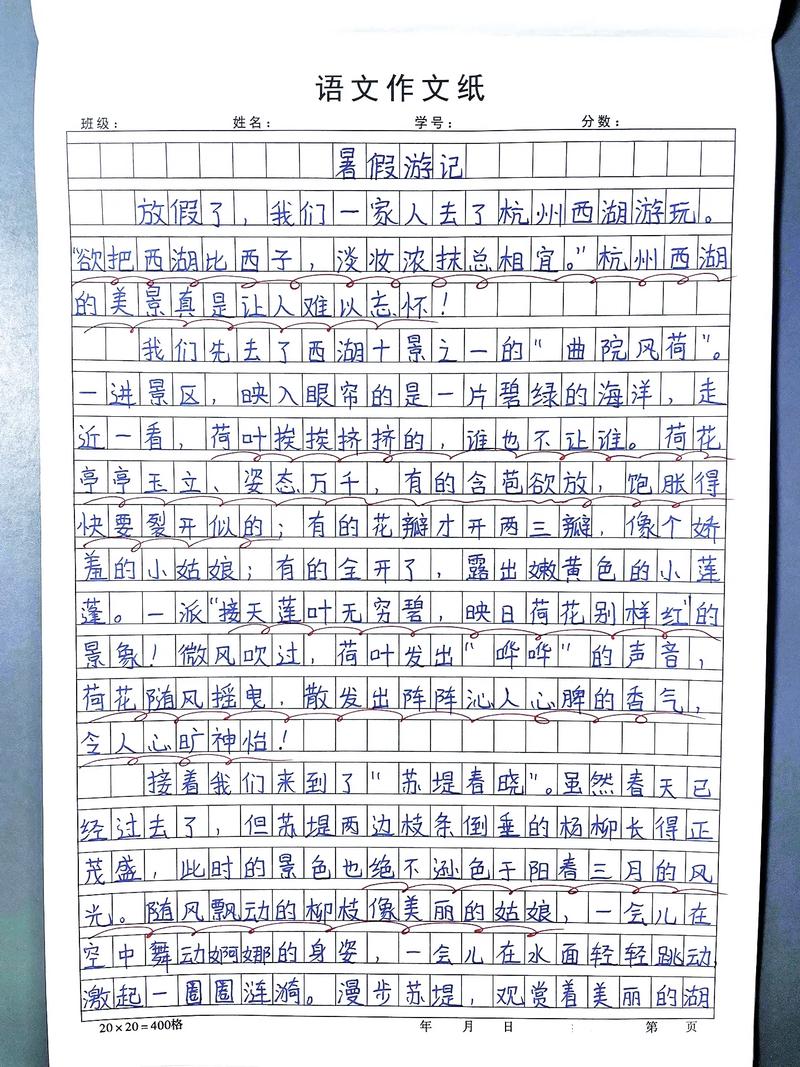 语文作文纸
班级： 姓名： 学号： 分数：
暑假游记
放假了，我们一家人去了杭州西湖游玩。
“欲把西湖比西子，淡妆浓抹总相宜。”杭州西湖
的美景真是让人难以忘怀！
我们先去了西湖十景之一的“曲院风荷”。
一进景区，映入眼帘的是一片碧绿的海洋，走
近一看，荷叶挨挨挤挤的，谁也不让谁。荷花
亭亭玉立、姿态万千，有的含苞欲放，饱胀得
快要裂开似的；有的花瓣才开两三瓣，像个娇
羞的小姑娘；有的全开了，露出嫩黄色的小莲
蓬。一派“接天莲叶无穷碧，映日荷花别样红”的
景象！微风吹过，荷叶发出“哗哗”的声音，
荷花随风摇曳，散发出阵阵沁人心脾的香气，
令人心旷神怡！
接着我们来到了“苏堤春晓”。虽然春天已
经过去了，但苏堤两边枝条倒垂的杨柳长得正
茂盛，此时的景色也绝不逊色于阳春三月的风
光。随风飘动的柳枝像美丽的姑娘，一会儿在
空中舞动婀娜的身姿，一会儿在水面轻轻跳动，
激起一圈圈涟漪。漫步苏堤，观赏着美丽的湖
20×20=400格 年 月 日 第 页